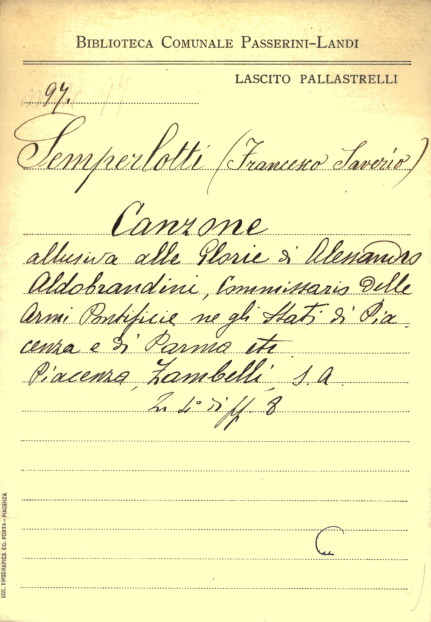 BIBLIOTECA COMUNALE PASSERINI-LANDI
LASCITO PALLASTRELLI
97.
Semperlotti (Francesco Saverio)
Canzone
allusiva alle Glorie di Alessandro
Aldobrandini, Commissario delle
Armi Pontificie ne gli Stati di Pia-
cenza e di Parma etc
Piacenza, Zambelli, s. a.
In 4° di ff. 8
SOC. TIPOGRAFICA ED. PORTA - PIACENZA